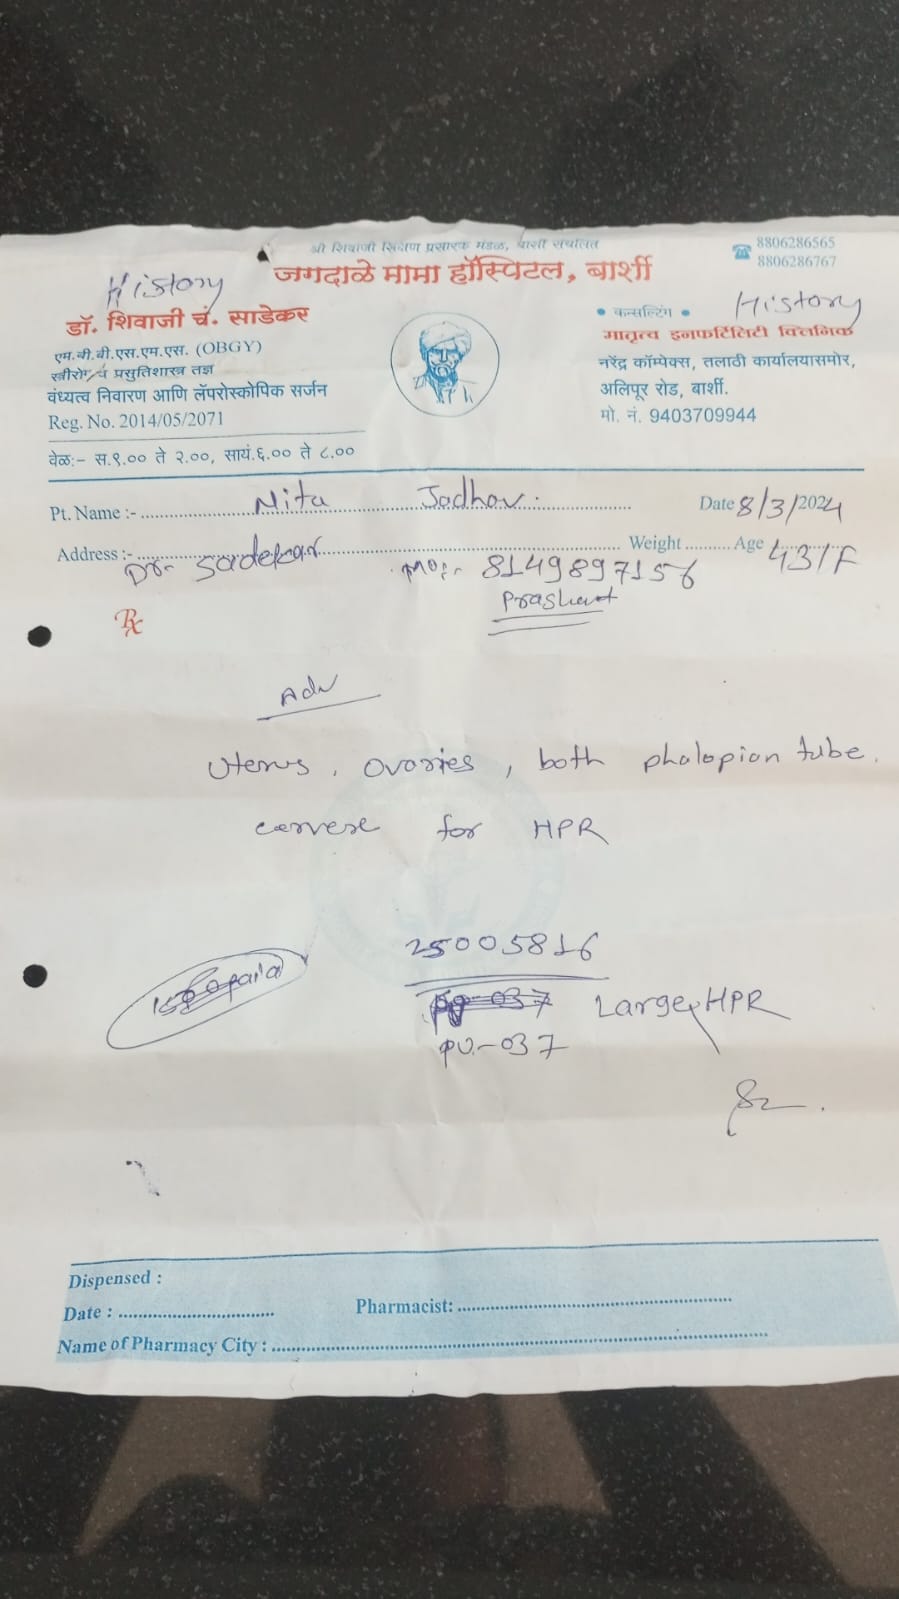 श्री शिवाजी शिक्षण प्रसारक मंडळ, बार्शी संचलित
जगदाळे मामा हॉस्पिटल, बार्शी
8806286565
8806286767
History
History
डॉ. शिवाजी चं. साडेकर
एम.बी.बी.एस.एम.एस. (OBGY)
स्त्रीरोग व प्रसुतिशास्त्र तज्ञ
वंध्यत्व निवारण आणि लॅपरोस्कोपिक सर्जन
Reg. No. 2014/05/2071
वेळ:- स.९.०० ते २.००, सायं.६.०० ते ८.००
• कन्सल्टिंग •
मातृत्व इनफर्टिलिटी क्लिनिक
नरेंद्र कॉम्पेक्स, तलाठी कार्यालयासमोर,
अलिपूर रोड, बार्शी.
मो. नं. 9403709944
Pt. Name :- Nita Jadhav. Date 8/3/2024
Address :- Weight Age 43/F
Dr- Sadekar Mo:- 8149897156
Prashant
Rx
Adv
Uterus, ovaries, both phalopian tube,
cervese for HPR
25005816
PU-037 Large HPR
PU-037
Dispensed :
Date : Pharmacist:
Name of Pharmacy City :